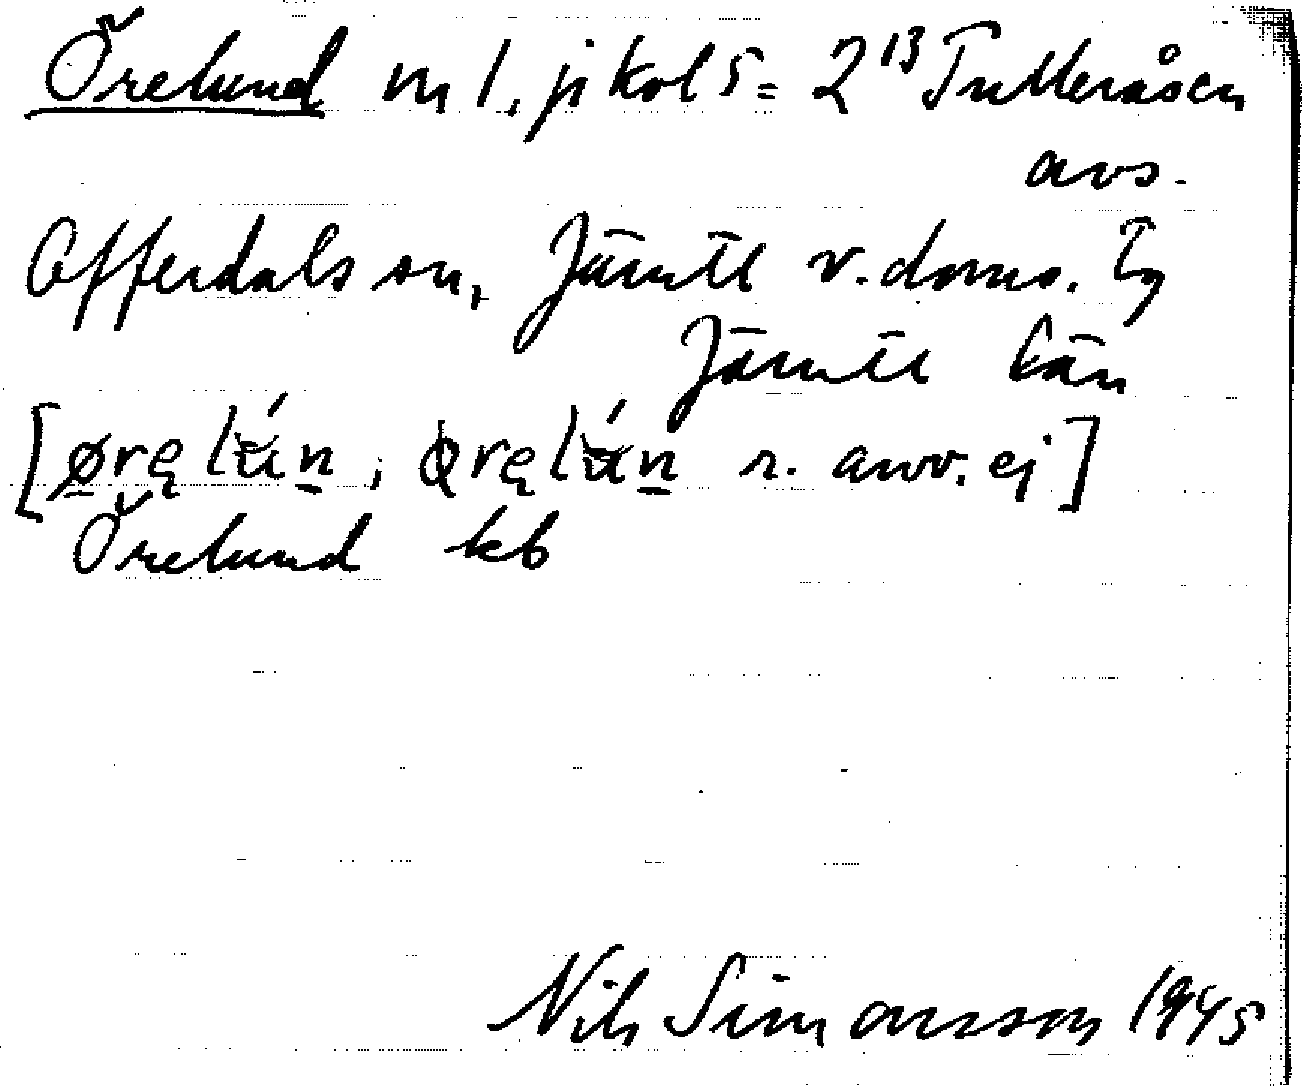 Örelund n 1, jikol 5 = 2¹³ Tulleråsen
avs.
Offerdals sn, Jämtl v. doms. Tg
Jämtl län
[ørę lún̠, ørę lún̠ r. anv. ej]
Örelund kb
Nils Simonsson 1945